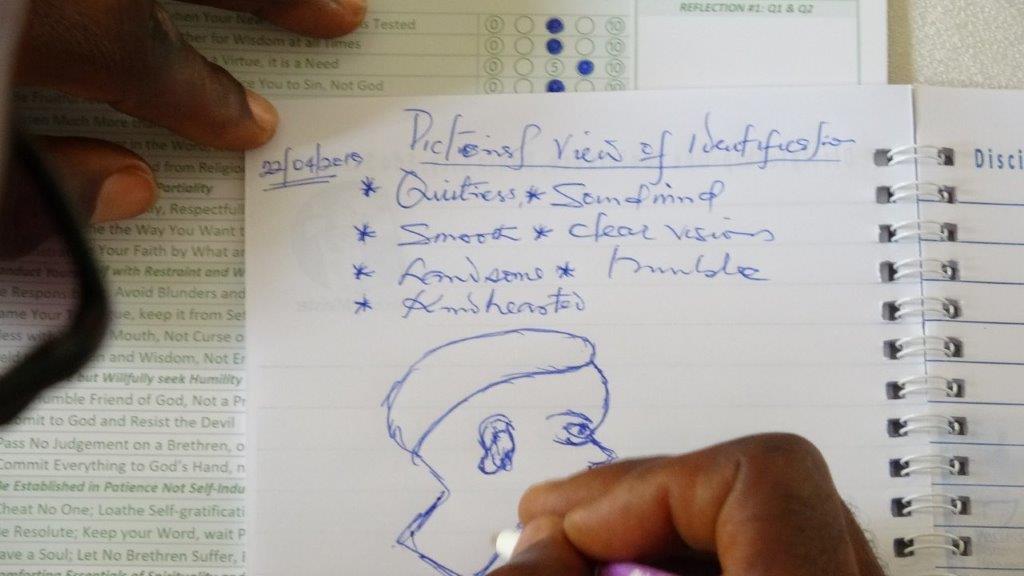 hen Your Ne s Tested
her for Wisdom at all Times
Virtue, it is a Need
e You to Sin, Not God
0 10
0 10
0 5 10
0
REFLECTION #1: Q1 & Q2
Be Fruitful
en Much More than
r in the Word
d from Religio
Partiality
y, Respectfull
e the Way You Want t
Your Faith by What a
onduct You lf with Restraint and W
e Respons Avoid Blunders and
ame Your T ue, keep it from Sef
less w Mouth, Not Curse o
ield n and Wisdom, Not Er
but Willfully seek Humility
umble Friend of God, Not a Pr
omit to God and Resist the Devil
Pass No Judgement on a Brethren, o
Commit Everything to God's Hand, n
Be Established in Patience Not Self-Indu
Cheat No One; Loathe Self-gratificati
e Resolute; Keep your Word, wait P
ave a Soul; Let No Brethren Suffer,
omforting Essentials of Spirituality and
22/04/2019
View of Identification
* * Soundmind
* Smooth * Clear visions
* Handsome * Humble
* Kindhearted
Disci